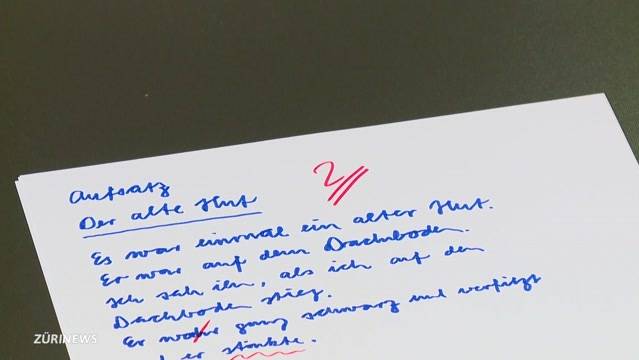 Aufsatz
2
Der alte Hut
Es war einmal ein alter Hut.
Er war auf dem Dachboden.
Ich sah ihn, als ich auf den
Dachboden stieg.
Er war ganz schwarz und verfilzt
er stinkte.
ZÜRINEWS